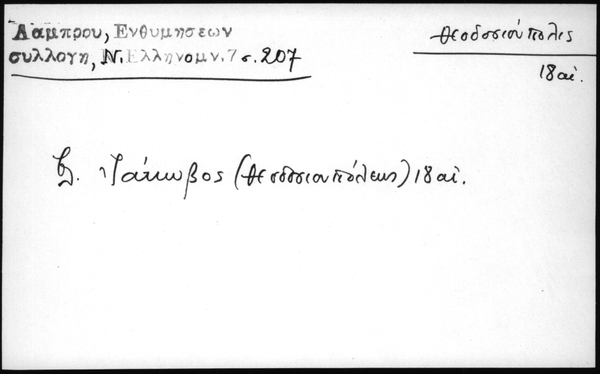 Λαμπρου, Ενθυμησεων
συλλογη, Ν. Ελληνομν. 7 σ. 207
Θεοδοσιούπολις
18 αἰ.
Ἰάκωβος (Θεοδοσιουπόλεως) 18 αἰ.